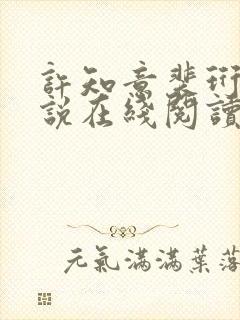 許知意裴珩
說在綫閱讀
元氣滿滿葉落